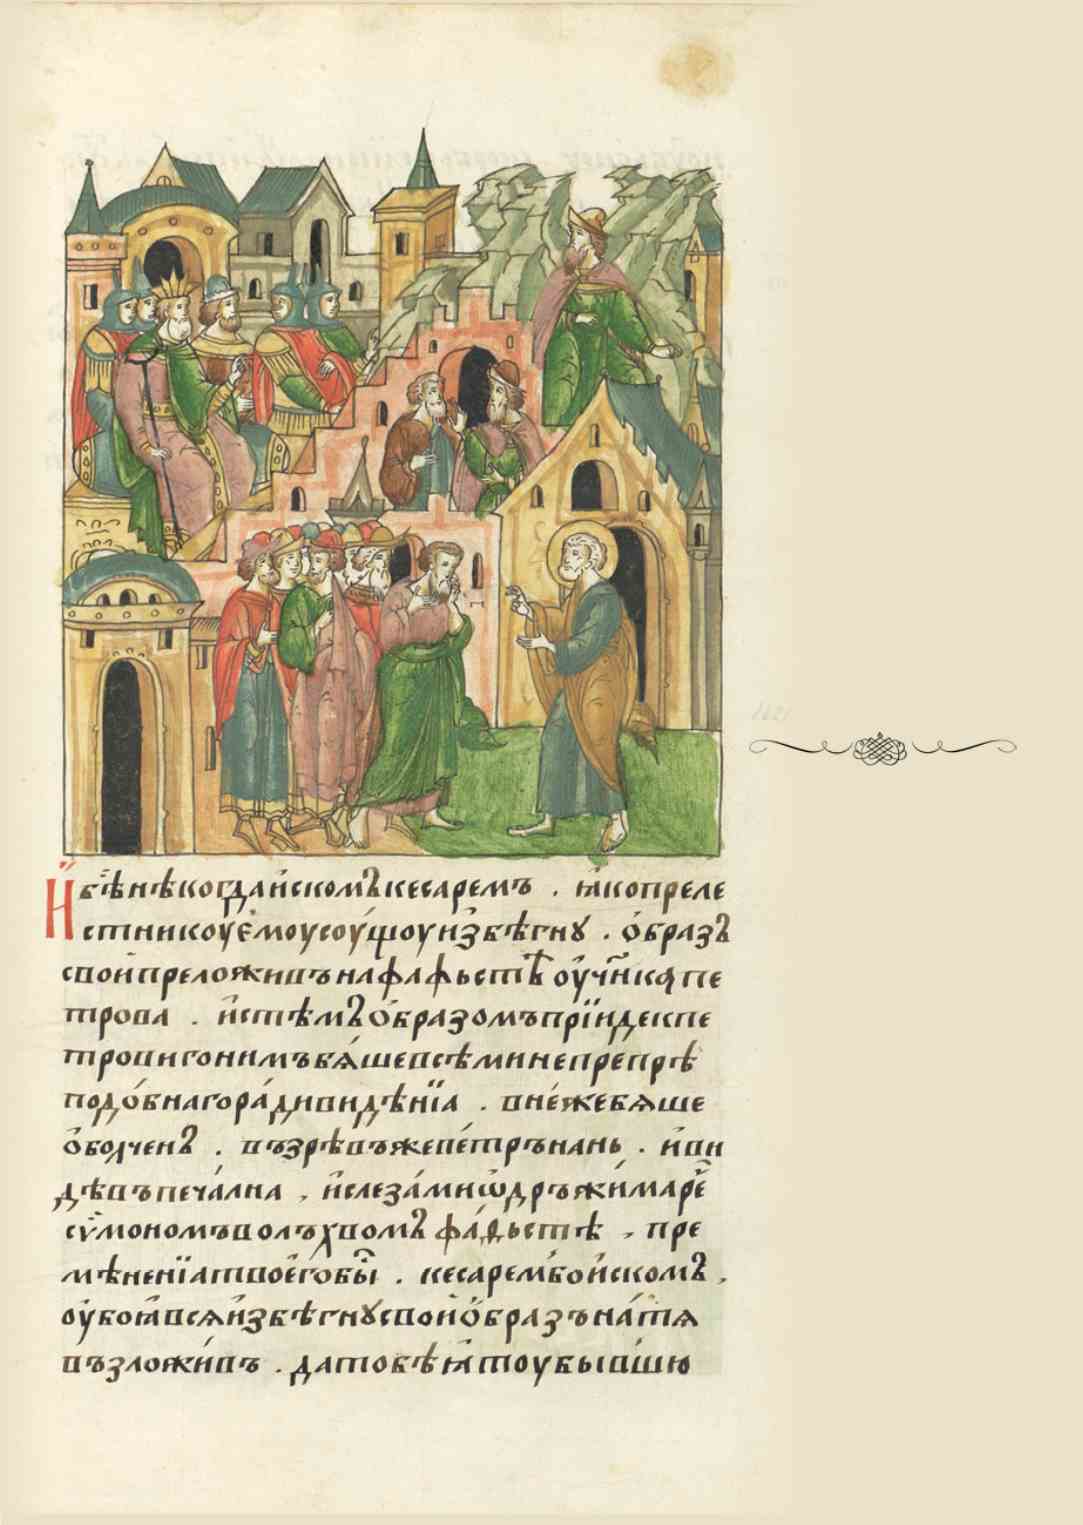 И бѣ нѣкогда искомъ кесаремъ . ꙗко преле
стникоу емоу соущоу избѣгнꙋ . образъ
свои преложивъ на фафьстѣ оучн҃ка пе
трова . и стѣмъ образомъ прїиде к пе
трови гонимъ бѧше всѣми не препрѣ
подобнаго ради видѣнїа . в неже бѧше
оболченъ . възрѣвъ же петръ нань . и ви
дѣвъ печална , и слезами ѡдръжима рѐ
сѵмономъ волъхвомъ фафьстѣ , пре
мѣненїа твоего бы̑ . кесарем бо искомъ ,
оубоꙗвсѧ избѣгнꙋ свои образъ на тѧ
възложивъ . да тобѣ ꙗтоу бывшю